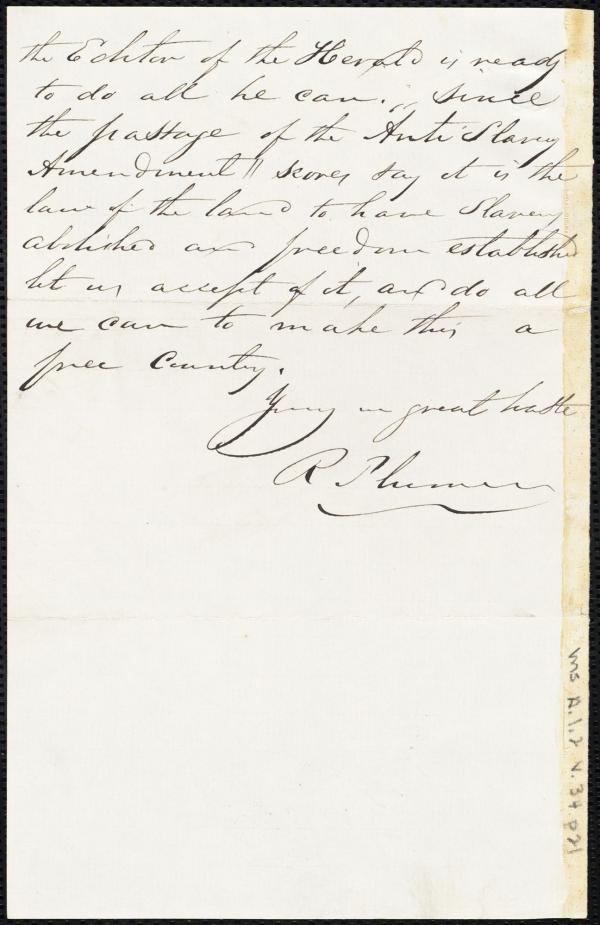 the Editor of the Herald is ready
to do all he can. „ since
the passage of the Anti Slavery
Amendment" scores say it is the
law of the land to have Slavery
abolished and freedom established
let us accept of it, and do all
we can to make this a
free Country.
Yours in great haste
R. Plumer
Ms A.1.2 v. 34 p21